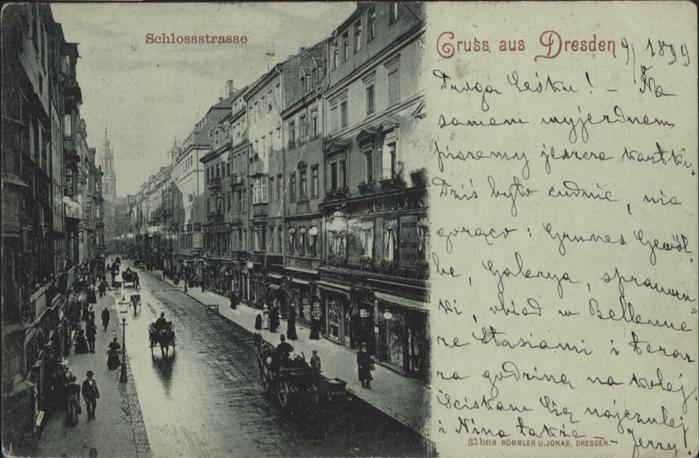 Schlossstrasse
Gruss aus Dresden 9/ 1899
Droga Ceśku! – Na
samem wyjezdnem
piszemy jeszcze kartki.
Dziś było cudnie, nie
gorąco; Grünes Gewöl-
be, Galerya, sprawun-
ki, obiad w Bellevue
ze Stasiami i teraz
za godzinę na kolej.
Ściskam Cię najczulej
i Nina także – Jerzy.
93 bnm RÖMMLER U. JONAS, DRESDEN.